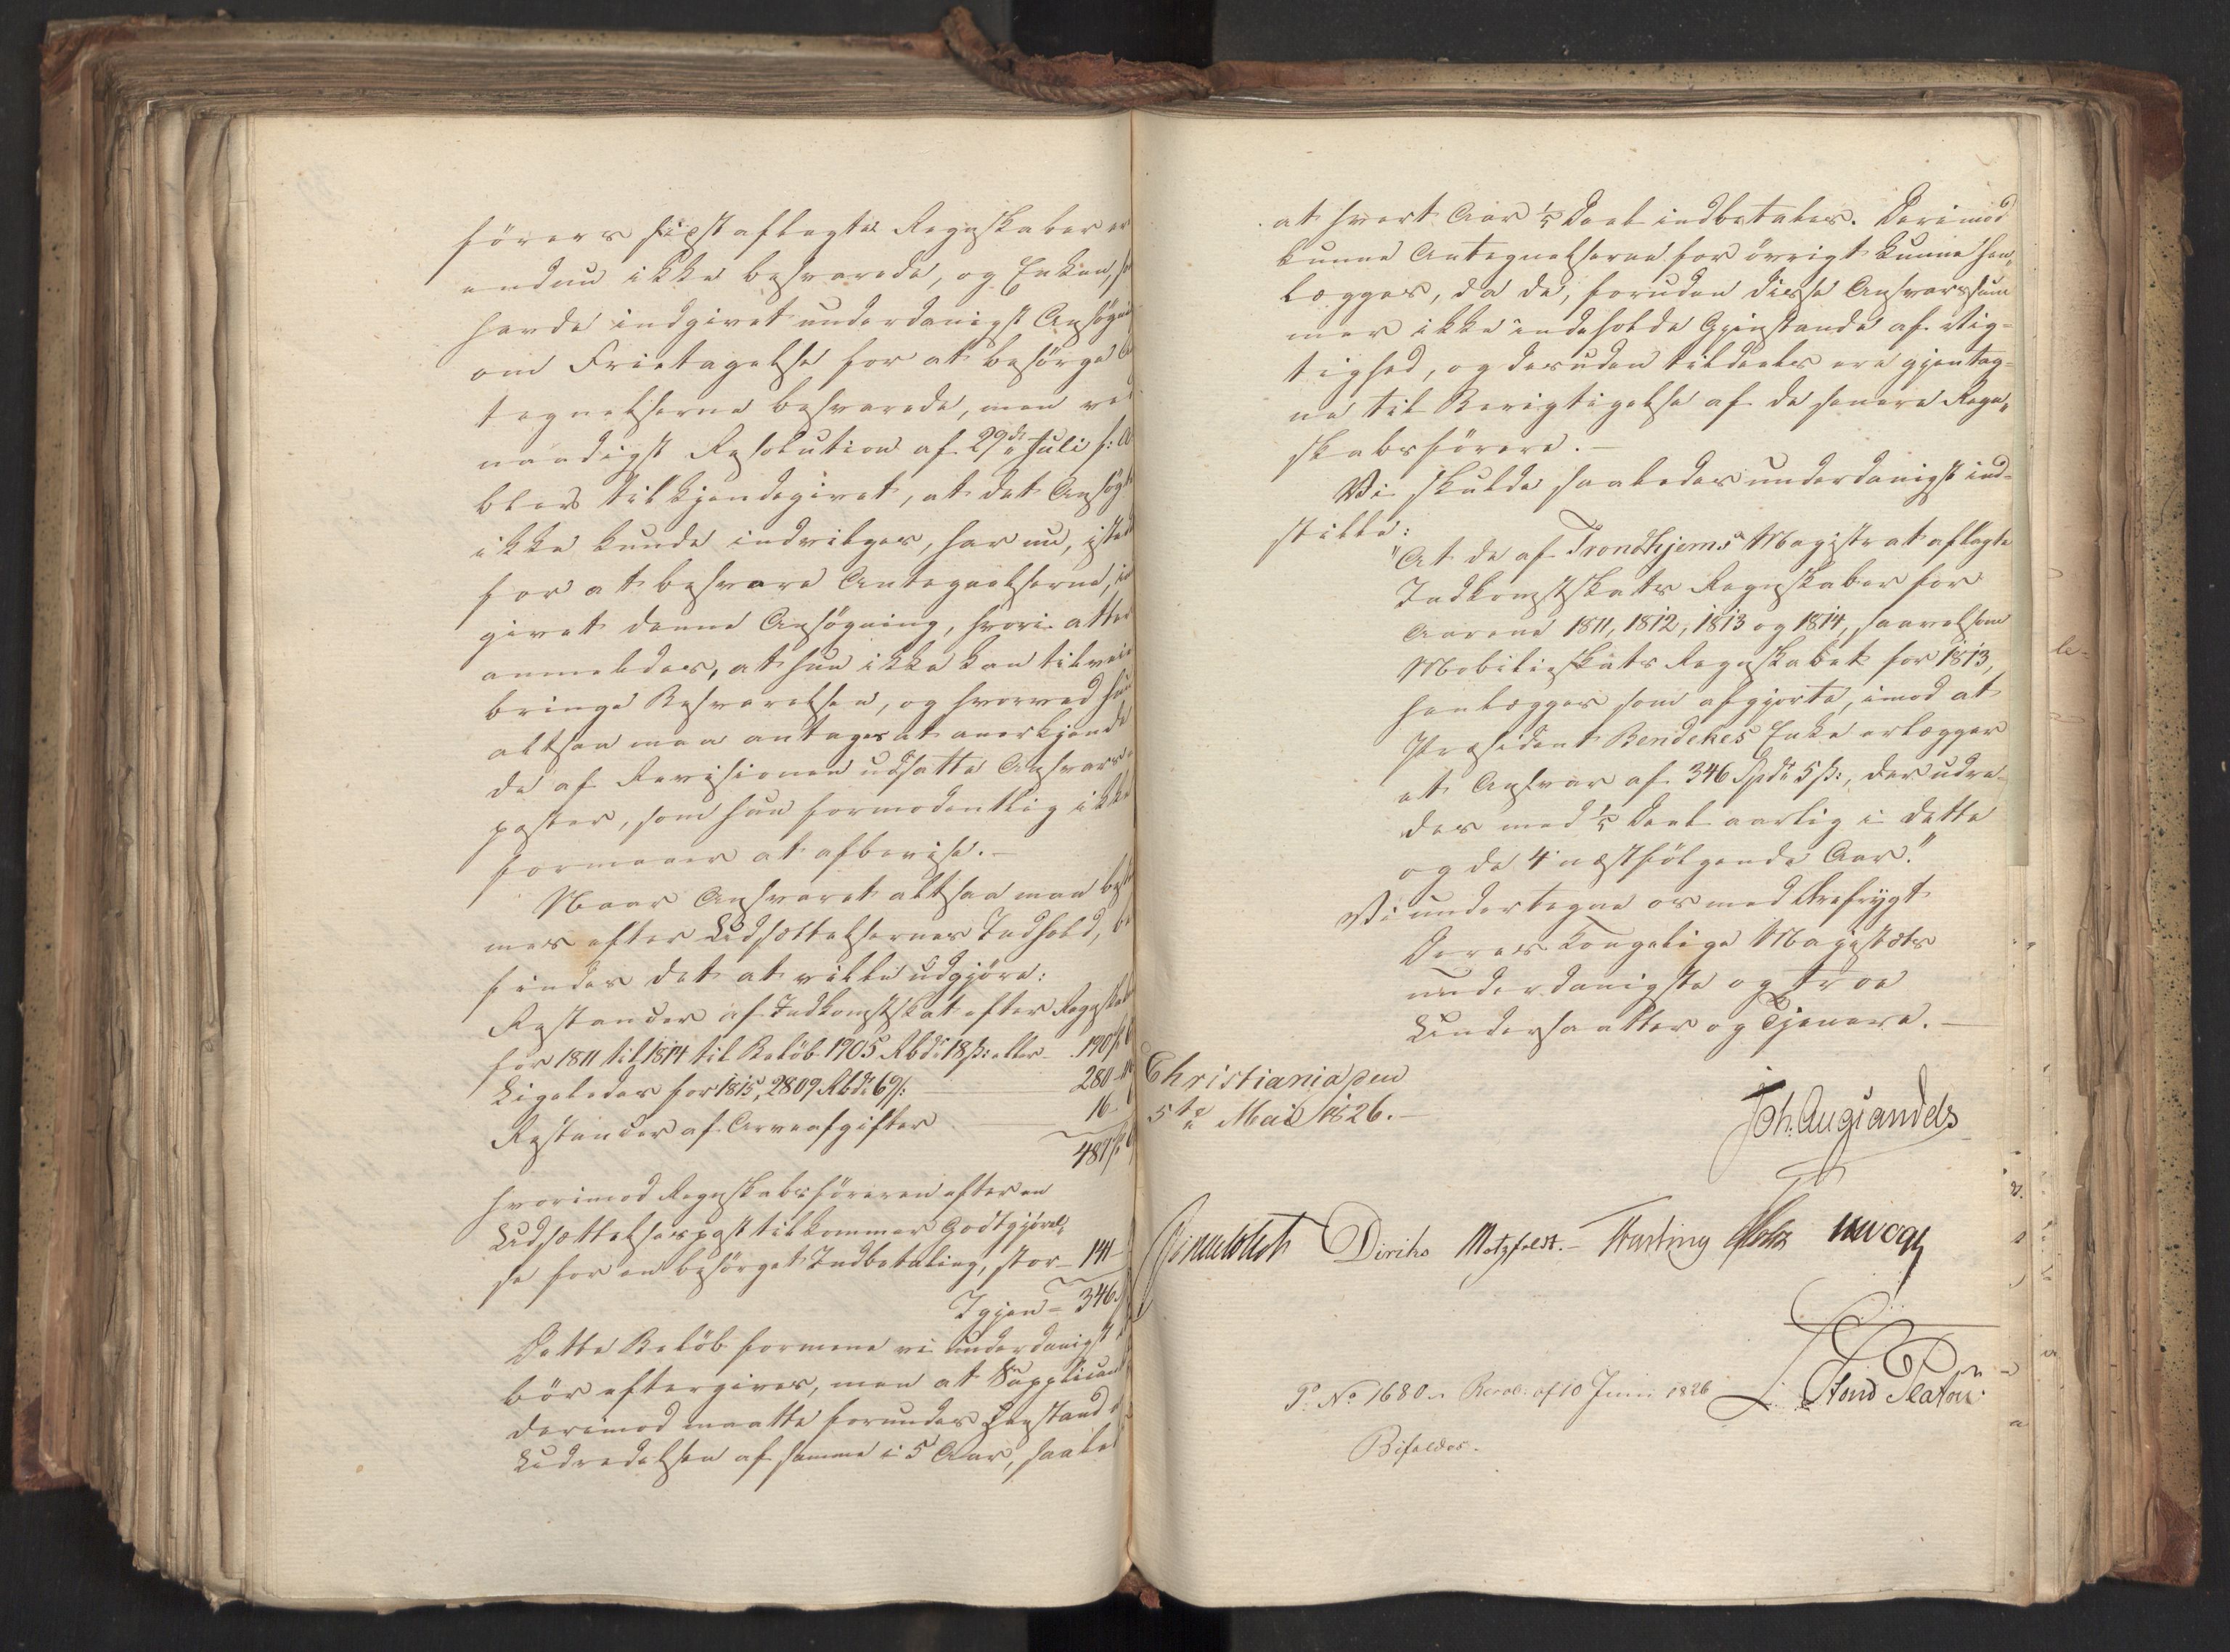 förers sidst aflagte Regnskaber er
endnu ikke besvarede, og Enken,
havde indgivet underdanigst Ansøgni
om Fritagelse for at besörge
tegnelserne besvarede, men ved
naadigst Resolution af 29de Juli f: A
blev tilkjendegivet, at det Ansøgte
ikke kunde indvilges, har nu, isted
for at besvare Antegnelserne, in
givet denne Ansögning, hvori atter
anmeldes, at hun ikke kan tilveie
bringe Besvarelsen, og hvorved hun
altsaa maa antages at anerkjende
de af Revisionen udsatte Ansvars
poster, som hun formodentlig ikke
formaaer at afbevise.-
Naar Ansvaret altsaa maa beste
mes efter Udsættelsernes Indhold, be
findes det at ville udgjöre:
Restancer af Indkomstskat efter Regnskab
for 1811 til 1814 til Belöb 1905 Rbd 18 ß: eller 190
Ligeledes for 1815, 2809 Rbd 69 ß: 280
Restancer af Arveafgifter 16
487
hvorimod Regnskabsföreren efter en
Udsættelsespost tilkommer Godtgjörel-
se for en besörget Indbetaling, stor 141
Igjen = 346
Dette Belöb formene vi underdanigst
bör eftergives, men at Supplican
derimod maatte forundes Henstand
Udredelsen af samme i 5 Aar, saale
at hvert Aar 1/5 Deel indbetales. Derimod
kunne Antegnelserne for övrigt kunne hen-
lægges, da de, foruden disse Ansvarssum
mer ikke indeholde Gjenstande af Vig-
tighed, og desuden tildeels ere gjentag-
ne til Berigtigelse af de senere Regn-
skabsförere.-
Vi skulde saaledes underdanigst ind-
stille:
"At de af Trondhjems Magistrat aflagte
Indkomstskats Regnskaber for
Aarene 1811, 1812, 1813 og 1814, saavelsom
Mobilieskats Regnskabet for 1813,
henlægges som afgjorte, imod at
Præsident Bendekes Enke erlægger
et Ansvar af 346 Spd 5 ß:, der udre-
des med 1/5 Deel aarlig i dette
og de 4 næstfölgende Aar."
Vi undertegne os med Ærefrygt
Deres Kongelige Majestæts
underdanigste og troe
Undersaatter og Tjenere.-
Christiania den
5te Mai 1826.-
Joh. Aug Sandels
Diriks Motzfeldt.- Fasting Holst
P. No 1680. Resol: af 10 Juni 1826
L. Stoud Platou
Bifaldes.